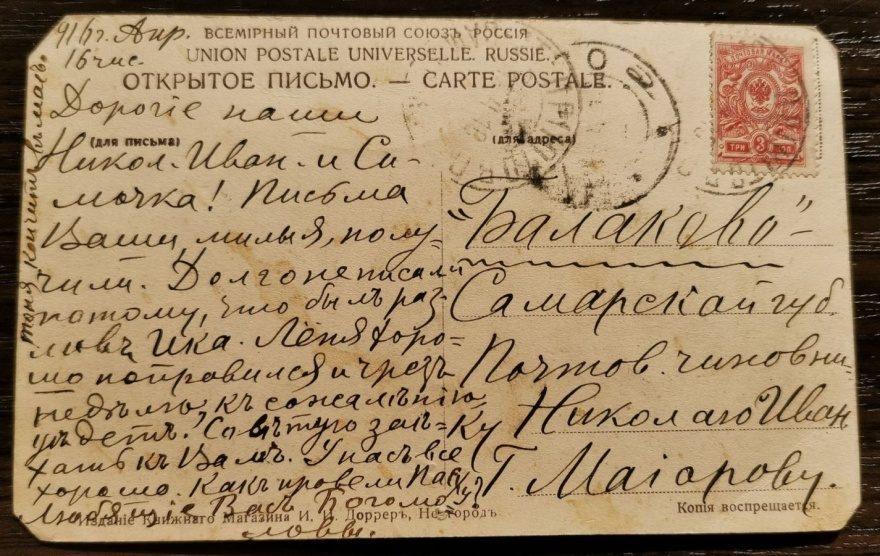 916 г. Апр.
16 час.
ВСЕМІРНЫЙ ПОЧТОВЫЙ СОЮЗЪ РОССІЯ
UNION POSTALE UNIVERSELLE. RUSSIE.
ОТКРЫТОЕ ПИСЬМО. — CARTE POSTALE.
(для письма)
(для адреса)
Дорогіе наши
Никол. Иван. и Си-
мочка! Письма
Ваши, милыя, полу-
чили. Долго не писали
потому, что былъ раз-
ливъ Ика. Леня хоро-
шо поправился и чрезъ
недѣлю, къ сожалѣнію
уѣдетъ. Совѣтую заѣ-
хать къ Вамъ. У насъ все
хорошо. Какъ провели Пасху?
Любящіе Васъ Богомо-
ловы.
Тоня кончитъ въ маѣ.
"Балаково" -
Самарской губ.
Почтов. чиновни-
ку Николаю Иван
Г. Маіорову.
ПОЧТОВАЯ МАРКА
ТРИ 3 КОП.
Изданіе Книжнаго Магазина И. И. Дорреръ, Не-городъ
Копія воспрещается.